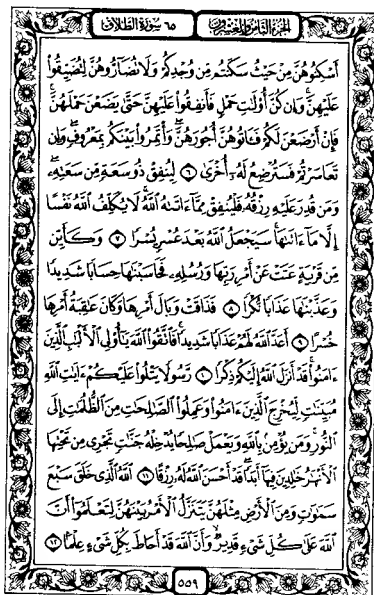 الجزء الثامن والعشرون
٦٥ سورة الطلاق
أَسْكِنُوهُنَّ مِنْ حَيْثُ سَكَنتُم مِّن وُجْدِكُمْ وَلَا تُضَآرُّوهُنَّ لِتُضَيِّقُوا۟
عَلَيْهِنَّ ۚ وَإِن كُنَّ أُو۟لَٰتِ حَمْلٍ فَأَنفِقُوا۟ عَلَيْهِنَّ حَتَّىٰ يَضَعْنَ حَمْلَهُنَّ ۚ
فَإِنْ أَرْضَعْنَ لَكُمْ فَـَٔاتُوهُنَّ أُجُورَهُنَّ ۖ وَأْتَمِرُوا۟ بَيْنَكُم بِمَعْرُوفٍ ۖ وَإِن
تَعَاسَرْتُمْ فَسَتُرْضِعُ لَهُۥٓ أُخْرَىٰ ٦ لِيُنفِقْ ذُو سَعَةٍ مِّن سَعَتِهِۦ ۖ
وَمَن قُدِرَ عَلَيْهِ رِزْقُهُۥ فَلْيُنفِقْ مِمَّآ ءَاتَىٰهُ ٱللَّهُ ۚ لَا يُكَلِّفُ ٱللَّهُ نَفْسًا
إِلَّا مَآ ءَاتَىٰهَا ۚ سَيَجْعَلُ ٱللَّهُ بَعْدَ عُسْرٍ يُسْرًا ٧ وَكَأَيِّن
مِّن قَرْيَةٍ عَتَتْ عَنْ أَمْرِ رَبِّهَا وَرُسُلِهِۦ فَحَاسَبْنَٰهَا حِسَابًا شَدِيدًا
وَعَذَّبْنَٰهَا عَذَابًا نُّكْرًا ٨ فَذَاقَتْ وَبَالَ أَمْرِهَا وَكَانَ عَٰقِبَةُ أَمْرِهَا
خُسْرًا ٩ أَعَدَّ ٱللَّهُ لَهُمْ عَذَابًا شَدِيدًا ۖ فَٱتَّقُوا۟ ٱللَّهَ يَٰٓأُو۟لِى ٱلْأَلْبَٰبِ ٱلَّذِينَ
ءَامَنُوا۟ ۚ قَدْ أَنزَلَ ٱللَّهُ إِلَيْكُمْ ذِكْرًا ١٠ رَّسُولًا يَتْلُوا۟ عَلَيْكُمْ ءَايَٰتِ ٱللَّهِ
مُبَيِّنَٰتٍ لِّيُخْرِجَ ٱلَّذِينَ ءَامَنُوا۟ وَعَمِلُوا۟ ٱلصَّٰلِحَٰتِ مِنَ ٱلظُّلُمَٰتِ إِلَى
ٱلنُّورِ ۚ وَمَن يُؤْمِنۢ بِٱللَّهِ وَيَعْمَلْ صَٰلِحًا يُدْخِلْهُ جَنَّٰتٍ تَجْرِى مِن تَحْتِهَا
ٱلْأَنْهَٰرُ خَٰلِدِينَ فِيهَآ أَبَدًا ۖ قَدْ أَحْسَنَ ٱللَّهُ لَهُۥ رِزْقًا ١١ ٱللَّهُ ٱلَّذِى خَلَقَ سَبْعَ
سَمَٰوَٰتٍ وَمِنَ ٱلْأَرْضِ مِثْلَهُنَّ يَتَنَزَّلُ ٱلْأَمْرُ بَيْنَهُنَّ لِتَعْلَمُوٓا۟ أَنَّ
ٱللَّهَ عَلَىٰ كُلِّ شَىْءٍ قَدِيرٌ وَأَنَّ ٱللَّهَ قَدْ أَحَاطَ بِكُلِّ شَىْءٍ عِلْمًۢا ١٢
٥٥٩